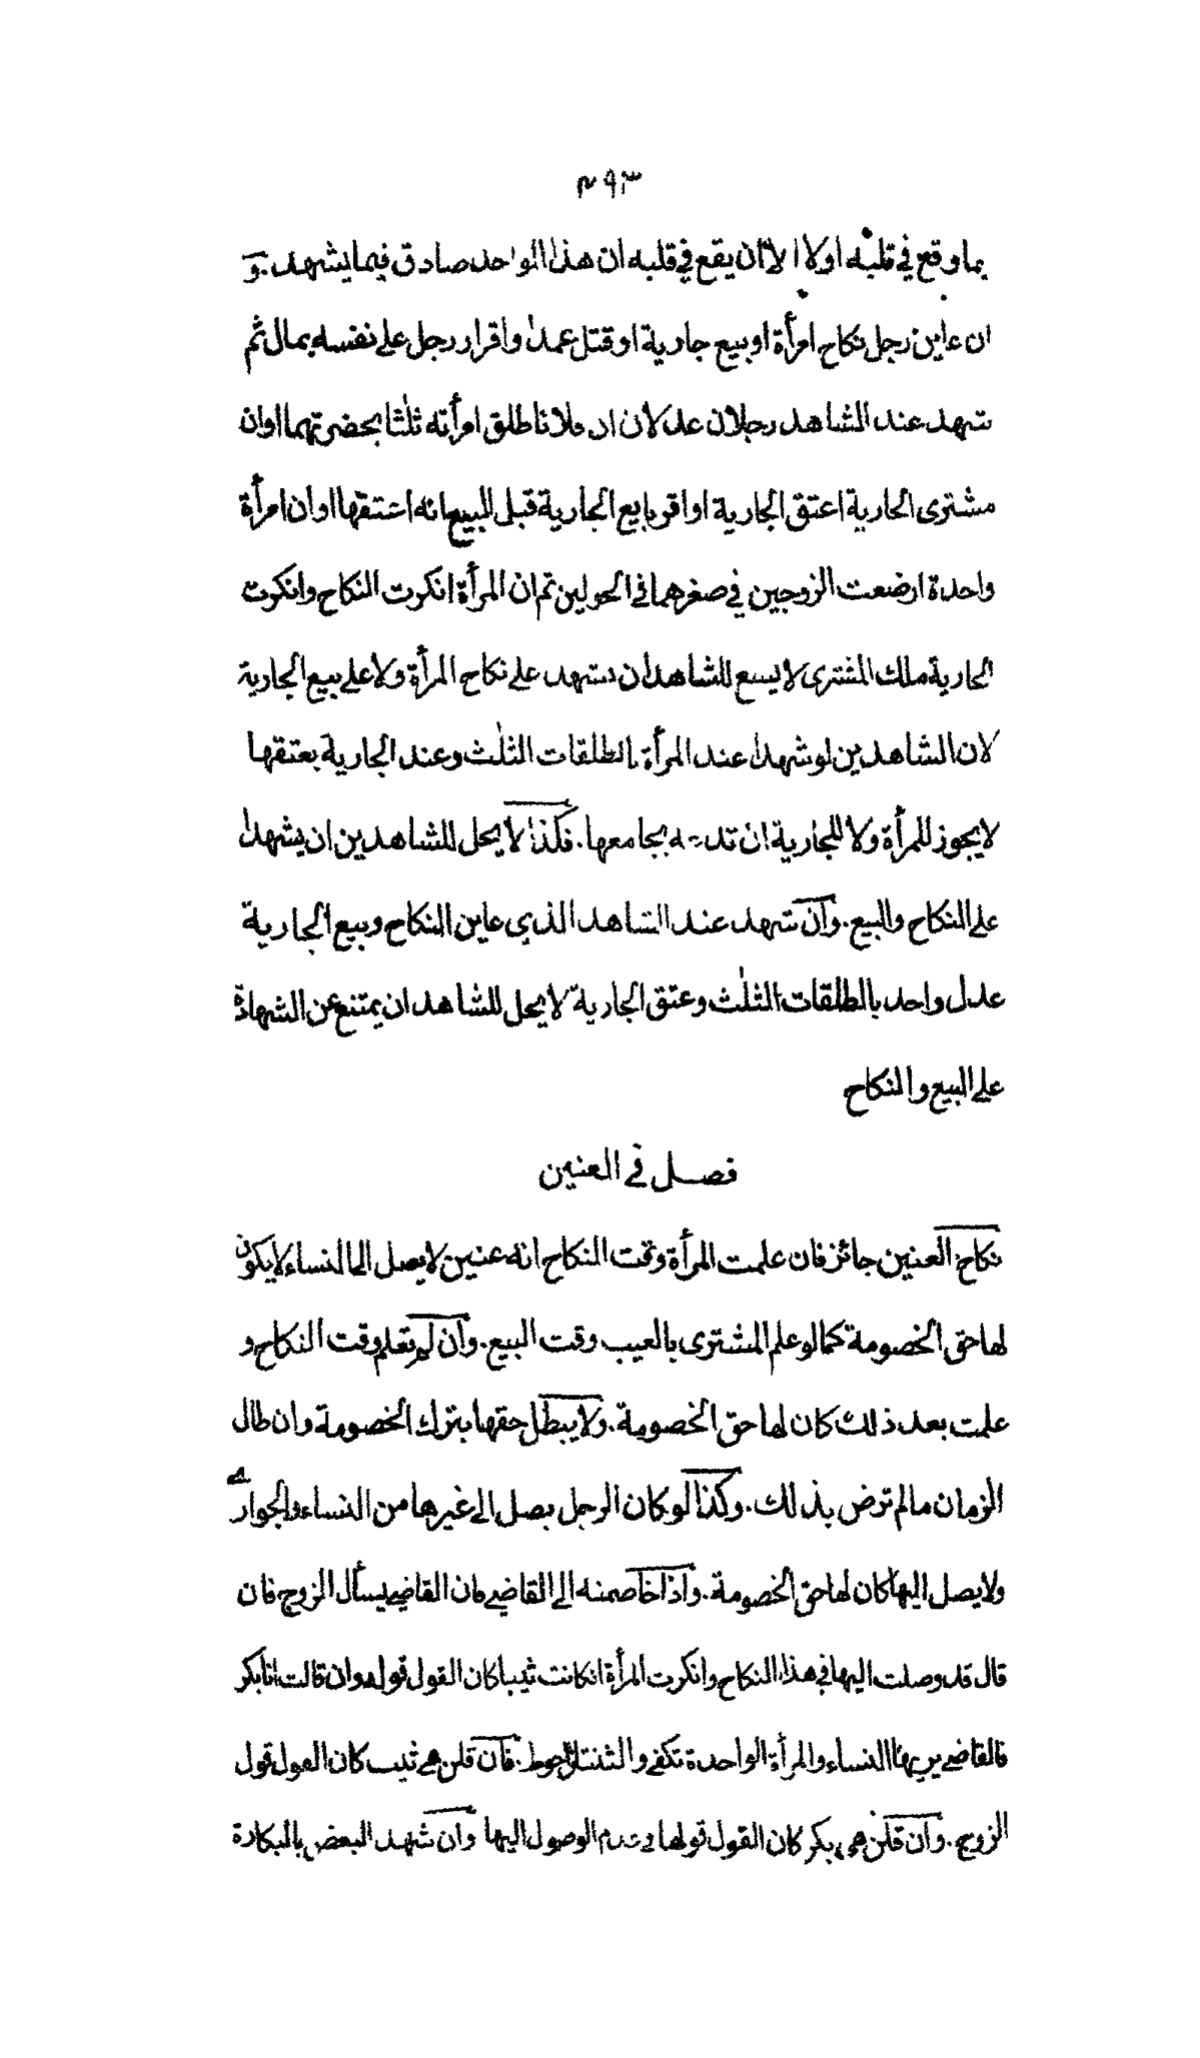 ٤٩٣
بما وقع في قلبه اولا الا ان يقع في قلبه ان هذا الواحد صادق فيما يشهد. و
ان عاين رجل نكاح امرأة او بيع جارية او قتل عمدا واقرار رجل على نفسه بمال ثم
شهد عند الشاهد رجلان عدلان ان فلانا طلق امرأته ثلٰثا بحضرتهما اوان
مشترى الجارية اعتق الجارية او اقر بايع الجارية قبل البيع انه اعتقها او ان امرأة
واحدة ارضعت الزوجين في صغرهما في الحولين ثم ان المرأة انكرت النكاح وانكرت
الجارية ملك المشترى لا يسع للشاهد ان يشهد على نكاح المرأة ولا على بيع الجارية
لان الشاهدين لو شهدا عند المرأة بالطلقات الثلٰث وعند الجارية بعتقها
لا يجوز للمرأة ولا للجارية ان تدعه يجامعها. فكذا لا يحل للشاهدين ان يشهدا
على النكاح والبيع. وان شهد عند الشاهد الذي عاين النكاح وبيع الجارية
عدل واحد بالطلقات الثلٰث وعتق الجارية لا يحل للشاهد ان يمتنع عن الشهادة
على البيع والنكاح
فصل في العنين
نكاح العنين جائز فان علمت المرأة وقت النكاح انه عنين لا يصل الى النساء لا يكون
لها حق الخصومة كما لو علم المشترى بالعيب وقت البيع. وان لم تعلم وقت النكاح و
علمت بعد ذلك كان لها حق الخصومة. ولا يبطل حقها بترك الخصومة وان طال
الزمان مالم ترض بذلك. وكذا لو كان الرجل يصل الى غيرها من النساء والجوارى
ولا يصل اليها كان لها حق الخصومة. واذا خاصمته الى القاضي فان القاضي يسأل الزوج فان
قال قد وصلت اليها في هذا النكاح وانكرت المرأة انكانت ثيبا كان القول قوله وان قالت انا بكر
فالقاضي يريها النساء والمرأة الواحدة تكفي والثنتان احوط. فان قلن هي ثيب كان القول قول
الزوج. وان قلن هي بكر كان القول قولها في عدم الوصول اليها وان شهد البعض بالبكارة